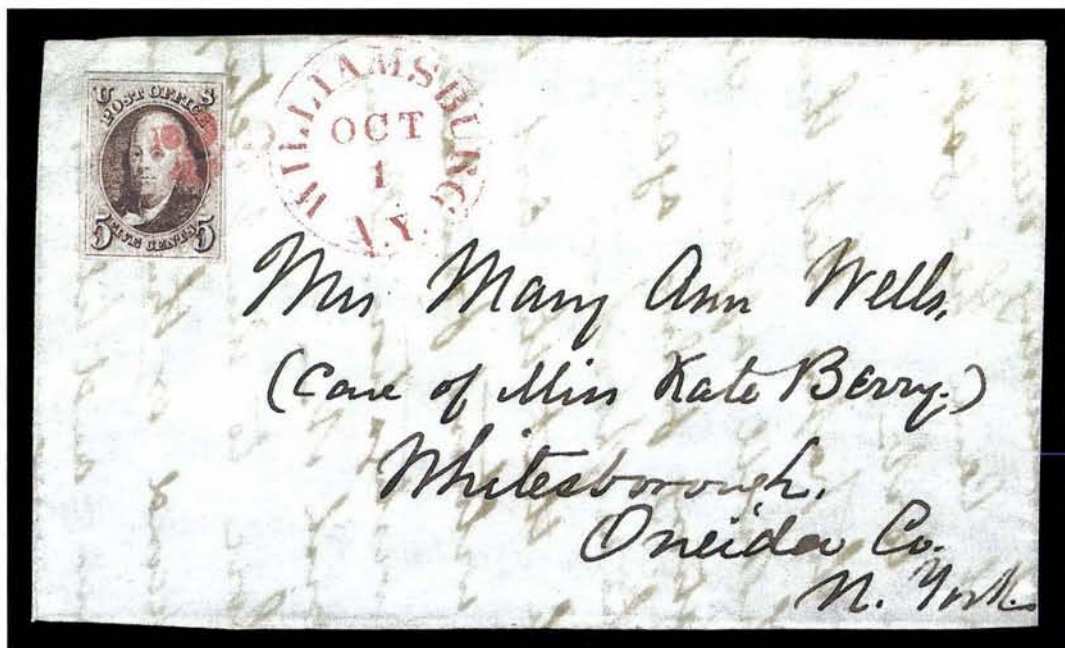 U S
POST OFFICE
5 FIVE CENTS 5
WILLIAMSBURG N.Y.
OCT
1
Mrs Mary Ann Wells,
(Care of Miss Kate Berry.)
Whitesborough.
Oneida Co.
N. York.